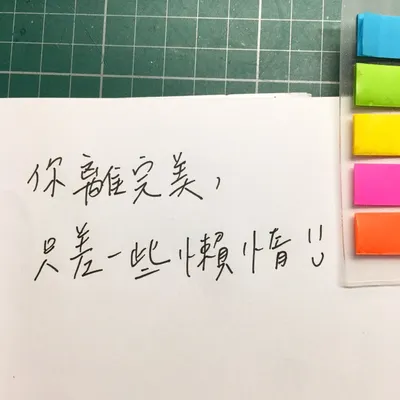 你離完美，
只差一些懶惰!!